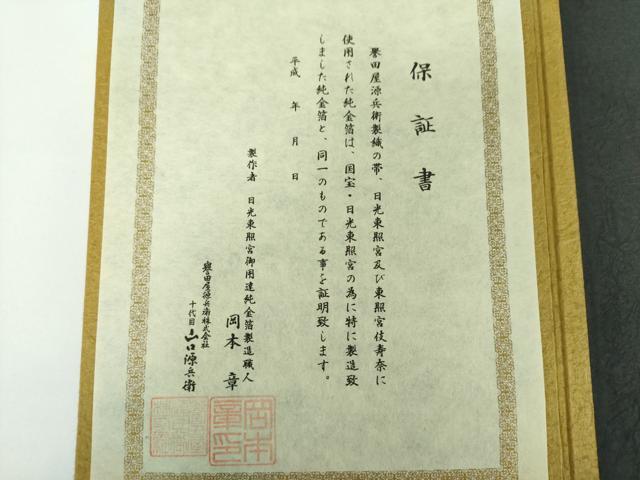 保証書
誉田屋源兵衛製織の帯、日光東照宮及び東照宮伎寿奈に
使用された純金箔は、国宝・日光東照宮の為に特に製造致
しました純金箔と、同一のものである事を証明致します。
平成 年 月 日
製作者 日光東照宮御用達純金箔製造職人
岡本 章
譽田屋源兵衛株式会社
十代目 山口源兵衛
岡本
章印